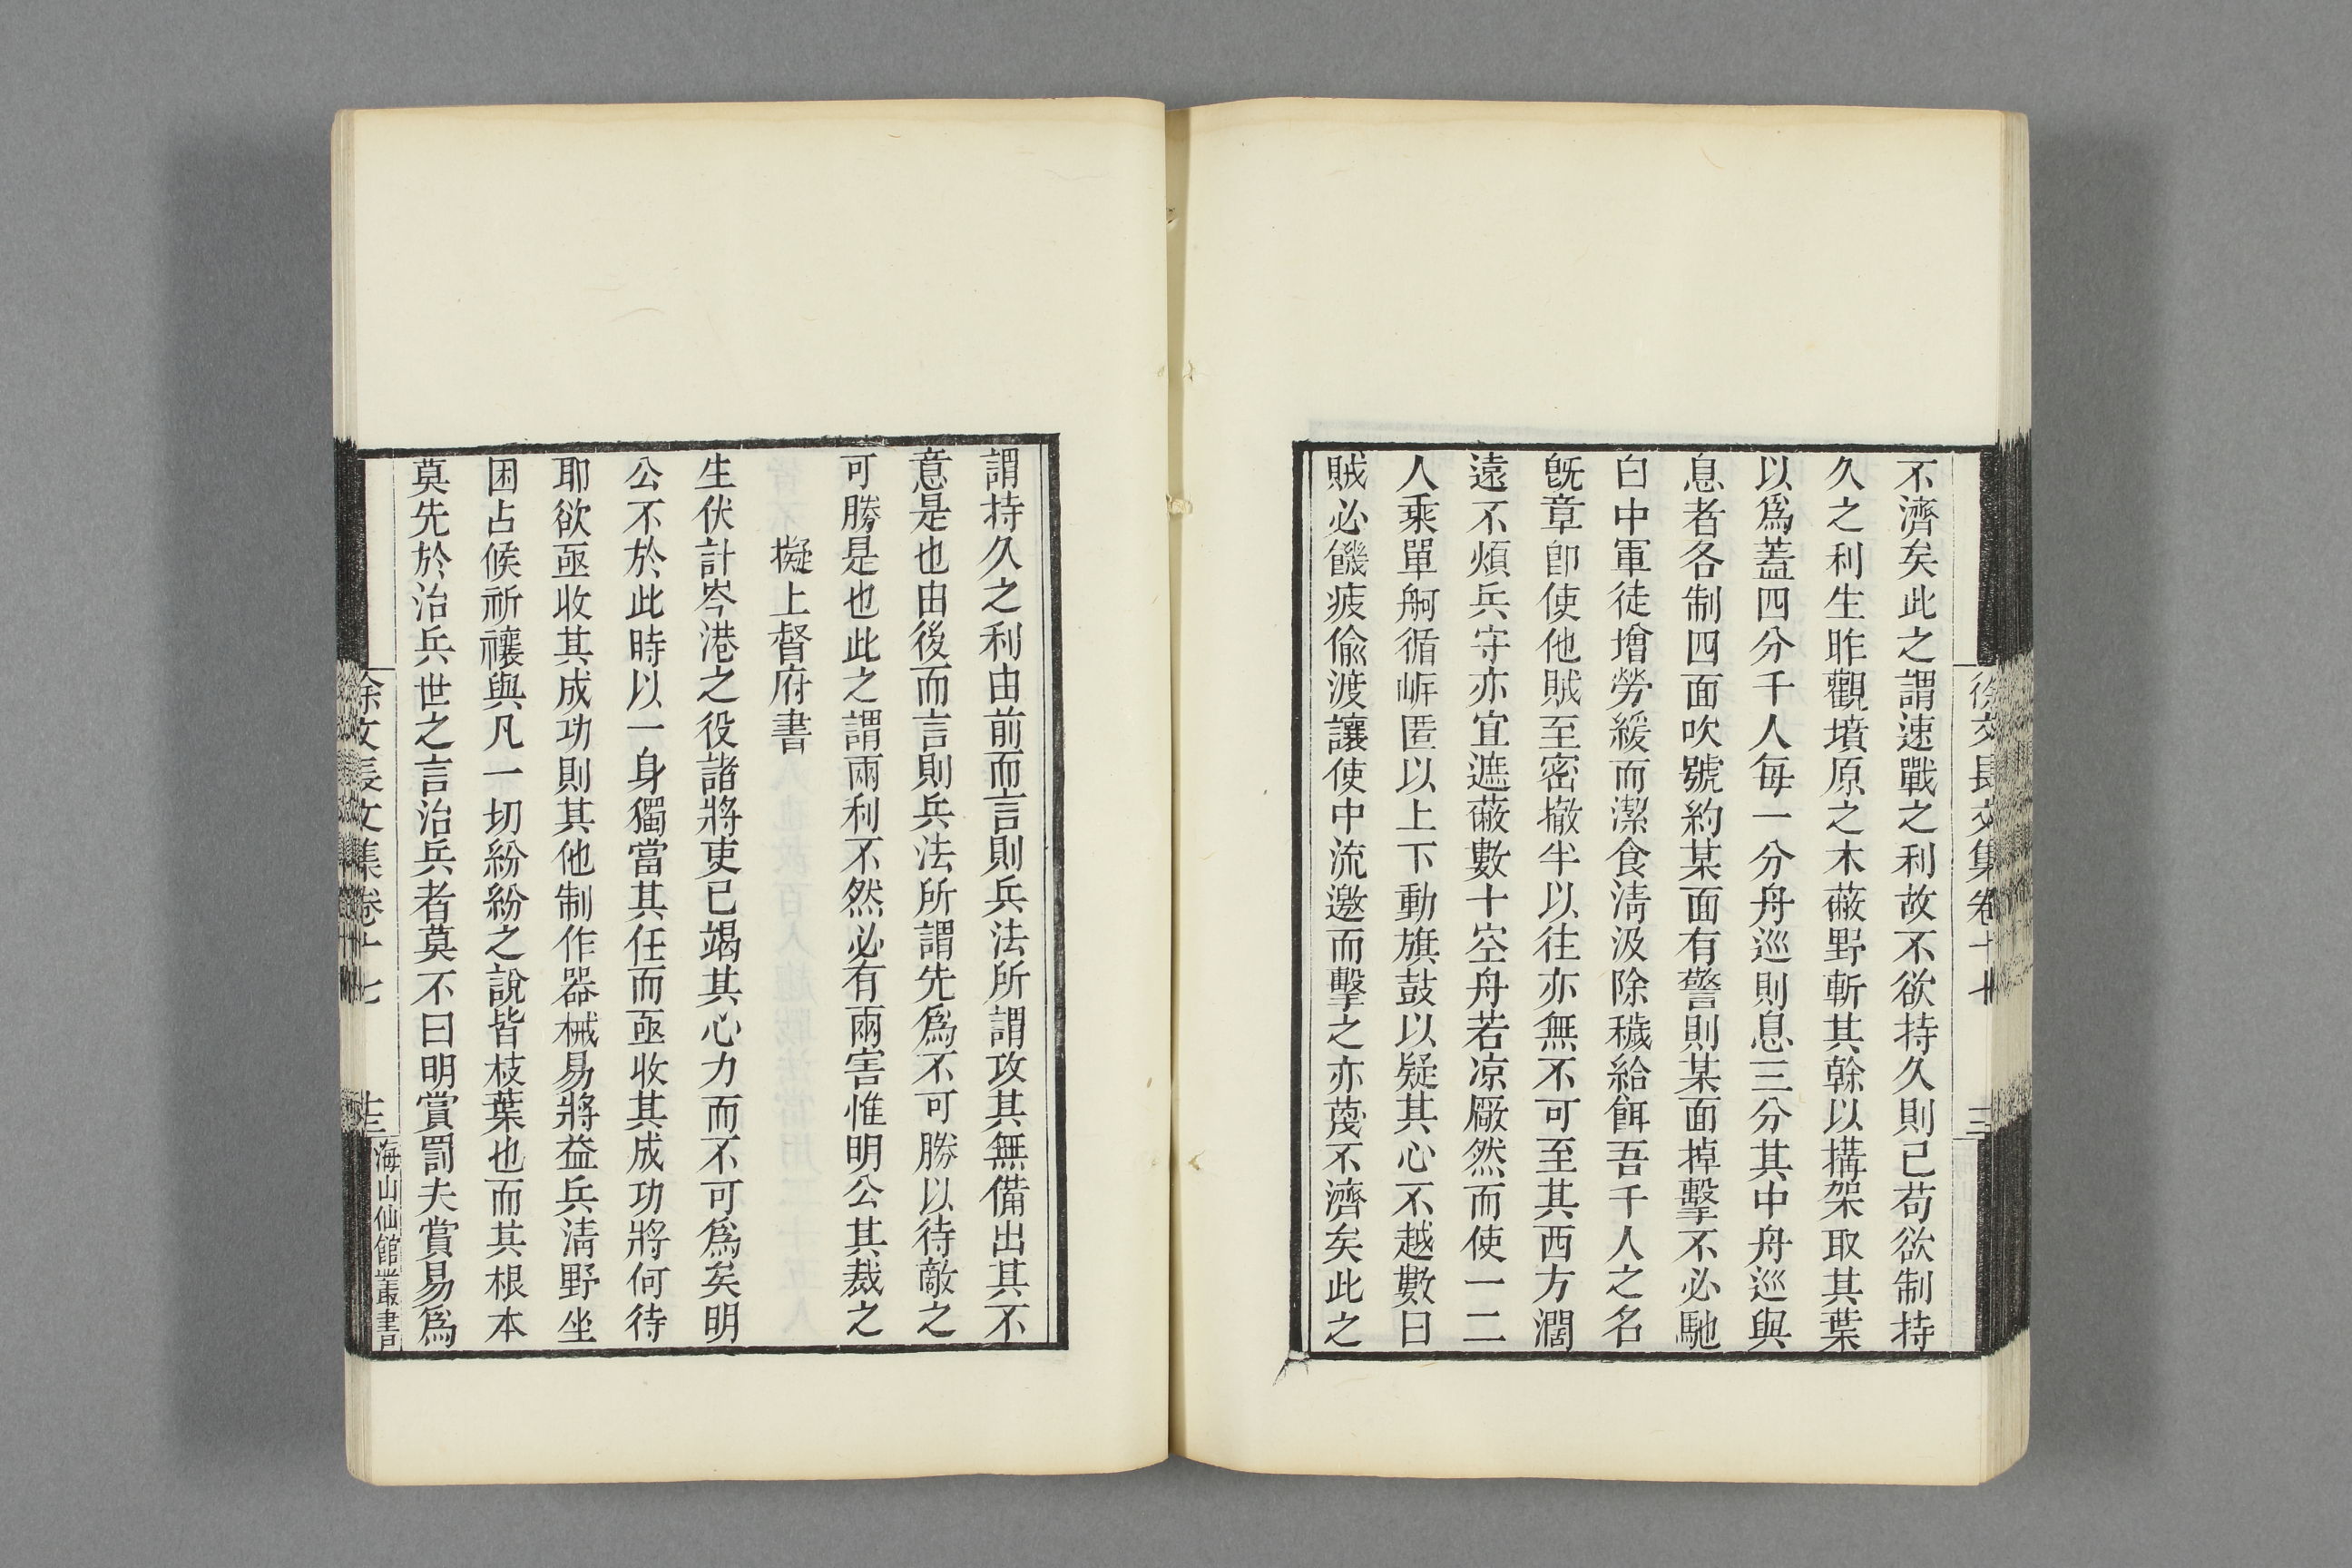 不濟矣此之謂速戰之利故不欲持久則已苟欲制持
久之利生昨觀墳原之木蔽野斬其榦以搆架取其葉
以爲蓋四分千人每一分舟巡則息三分其中舟巡與
息者各制四面吹號約某面有警則某面掉擊不必馳
白中軍徒增勞緩而潔食淸汲除穢給餌吾千人之名
旣章卽使他賊至密撤半以往亦無不可至其西方濶
遠不煩兵守亦宜遮蔽數十空舟若凉厰然而使一二
人乘單舸循岸匿以上下動旗鼓以疑其心不越數日
賊必饑疲偸渡讓使中流邀而擊之亦蔑不濟矣此之
謂持久之利由前而言則兵法所謂攻其無備出其不
意是也由後而言則兵法所謂先爲不可勝以待敵之
可勝是也此之謂兩利不然必有兩害惟明公其裁之
擬上督府書
生伏計岑港之役諸將吏已竭其心力而不可爲矣明
公不於此時以一身獨當其任而亟收其成功將何待
耶欲亟收其成功則其他制作器械易將益兵淸野坐
困占候祈禳與凡一切紛紛之說皆枝葉也而其根本
莫先於治兵世之言治兵者莫不曰明賞罰夫賞易爲
徐文長文集卷十七
海山仙館叢書